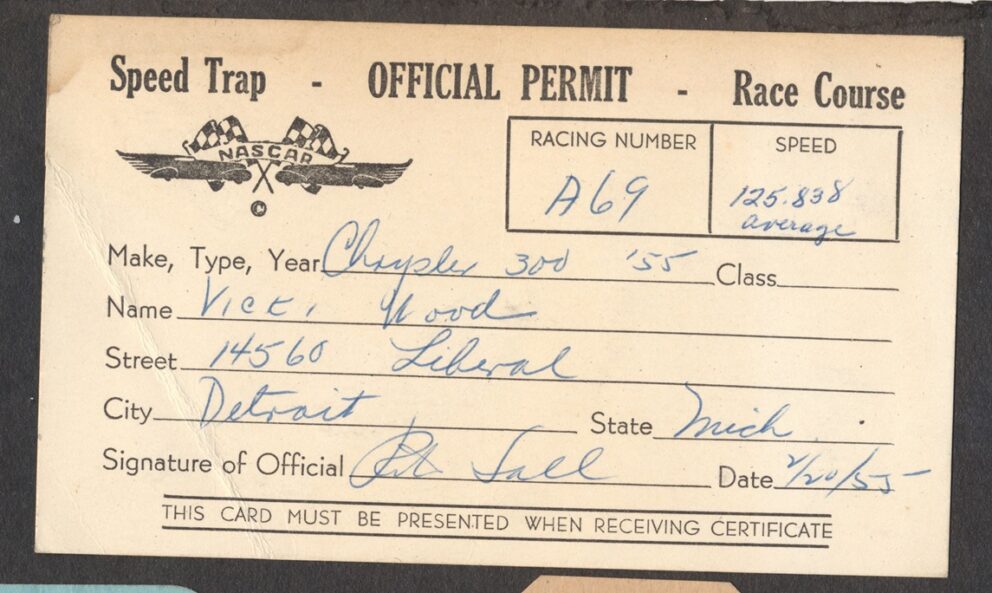 Speed Trap - OFFICIAL PERMIT - Race Course
NASCAR
©
RACING NUMBER SPEED
A69 125.838
average
Make, Type, Year Chrysler 300 '55 Class
Name Vicki Wood
Street 14560 Liberal
City Detroit State Mich.
Signature of Official Sall Date 2/20/55
THIS CARD MUST BE PRESENTED WHEN RECEIVING CERTIFICATE